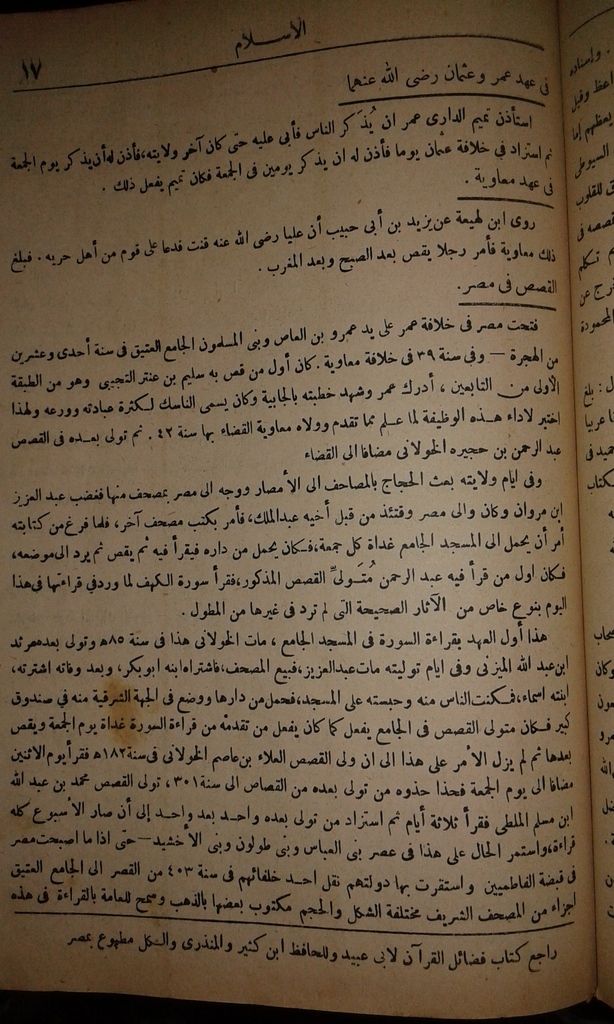 الاسلام
١٧
فى عهد عمر وعثمان رضى الله عنهما
استأذن تميم الدارى عمر ان يُذَكر الناس فأبى عليه حتى كان آخر ولايته، فأذن له أن يذكر يوم الجمعة
ثم استزاد فى خلافة عثمان يوما فأذن له ان يذكر يومين فى الجمعة فكان تميم يفعل ذلك .
فى عهد معاوية .
روى ابن لهيعة عن يزيد بن أبى حبيب أن عليا رضى الله عنه قنت فدعا على قوم من أهل حربه . فبلغ
ذلك معاوية فأمر رجلا يقص بعد الصبح وبعد المغرب .
القصص فى مصر .
فتحت مصر فى خلافة عمر على يد عمرو بن العاص وبنى المسلمون الجامع العتيق فى سنة أحدى وعشرين
من الهجرة — وفى سنة ٣٩ فى خلافة معاوية . كان أول من قص به سليم بن عنتر التجيبى وهو من الطبقة
الأولى من التابعين ، أدرك عمر وشهد خطبته بالجابية وكان يسمى الناسك لكثرة عبادته وورعه ولهذا
اختير لاداء هذه الوظيفة لما علم مما تقدم وولاه معاوية القضاء بها سنة ٤٢ . ثم تولى بعده فى القصص
عبد الرحمن بن حجيره الخولانى مضافا الى القضاء
وفى ايام ولايته بعث الحجاج بالمصاحف الى الأمصار ووجه الى مصر بمصحف منها فغضب عبد العزيز
ابن مروان وكان والى مصر وقتئذ من قبل أخيه عبدالملك، فأمر بكتب مصحف آخر، فلما فرغ من كتابته
أمر أن يحمل الى المسجد الجامع غداة كل جمعة، فكان يحمل من داره فيقرأ فيه ثم يقص ثم يرد الى موضعه،
فكان اول من قرأ فيه عبد الرحمن مُتَولىَّ القصص المذكور، فقرأ سورة الكهف لما ورد فى قراءتها فى هذا
اليوم بنوع خاص من الآثار الصحيحة التى لم ترد فى غيرها من المطول .
هذا أول العهد بقراءة السورة فى المسجد الجامع ، مات الخولانى هذا فى سنة ٨٥ه وتولى بعده مرثد
ابن عبد الله الميزنى وفى ايام توليته مات عبدالعزيز، فبيع المصحف، فاشتراه ابنه ابوبكر، وبعد وفاته اشترته،
ابنته اسماء، فمكنت الناس منه وحبسته على المسجد، فحمل من دارها ووضع فى الجهة الشرقية منه فى صندوق
كبير فكان متولى القصص فى الجامع يفعل كما كان يفعل من تقدمه من قراءة السورة غداة يوم الجمعة ويقص
بعدها ثم لم يزل الأمر على هذا الى ان ولى القصص العلاء بن عاصم الخولانى فى سنة ١٨٢ه فقرأ يوم الاثنين
مضافا الى يوم الجمعة فحذا حذوه من تولى بعده من القصاص الى سنة ٣٠١ ، تولى القصص محمد بن عبد الله
ابن مسلم الملطى فقرأ ثلاثة أيام ثم استزاد من تولى بعده واحد بعد واحد إلى أن صار الأسبوع كله
قراءة، واستمر الحال على هذا فى عصر بنى العباس وبنى طولون وبنى الأخشيد — حتى اذا ما اصبحت مصر
فى قبضة الفاطميين واستقرت بها دولتهم نقل احد خلفائهم فى سنة ٤٠٣ من القصر الى الجامع العتيق
اجزاء من المصحف الشريف مختلفة الشكل والحجم مكتوب بعضها بالذهب وسمح للعامة بالقراءة فى هذه
راجع كتاب فضائل القرآن لابى عبيد وللحافظ ابن كثير والمنذرى والكل مطبوع بمصر